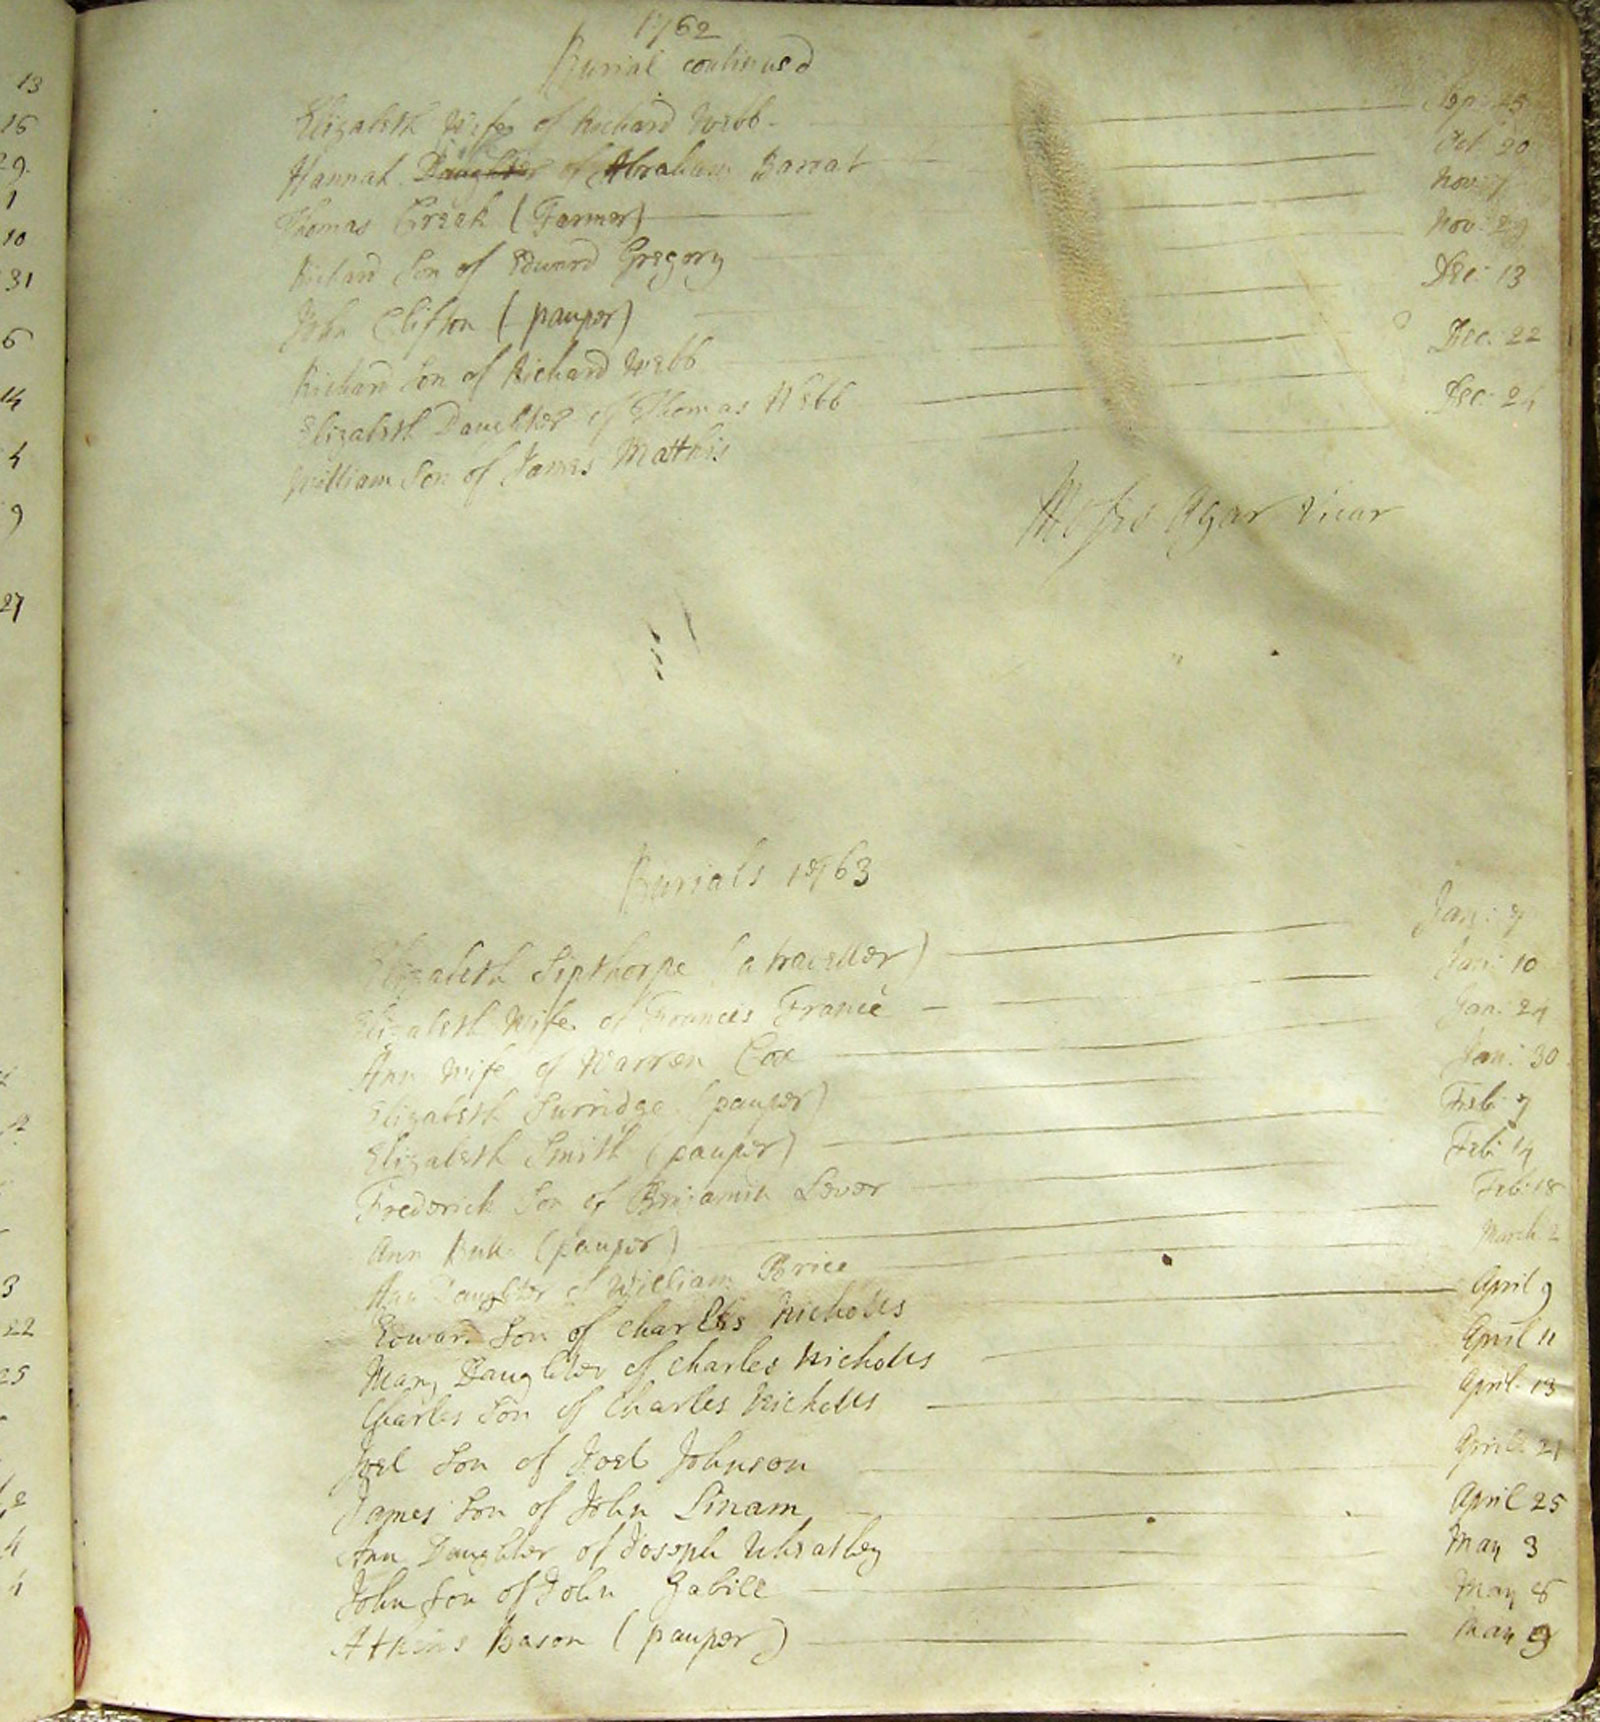 1762
Burial continued
Elizabeth Wife of Richard Webb Sep: 25
Hannah Daughter of Abraham Barrat Oct 20
Thomas Creek (Farmer) Nov: 7
Richard Son of Edward Gregory Nov: 29
John Clifton (pauper) Dec: 13
Richard Son of Richard Webb
Elizabeth Daughter of Thomas Webb Dec: 22
William Son of James Matthis Dec: 24
Moses Agar Vicar
Burials 1763
Elizabeth Sipthorpe (a traveller) Jan: 7
Elizabeth Wife of Francis France Jan: 10
Ann Wife of Warren Cox Jan: 24
Elizabeth Surridge (pauper) Jan: 30
Elizabeth Smith (pauper) Feb: 7
Frederick Son of Benjamin Lever Feb: 14
Ann (pauper) Feb: 18
Ann Daughter of William Brice March 2
Edward Son of Charles Nicholls April 9
Mary Daughter of Charles Nicholls April 11
Charles Son of Charles Nicholls April 13
Joel Son of Joel Johnson April 21
James Son of John Linam April 25
Ann Daughter of Joseph Wheatley May 3
John Son of John Gabill May 8
Atkins Bason (pauper) May 9
13
16
29.
1
10
31
6
14
4
9
27
3
22
25